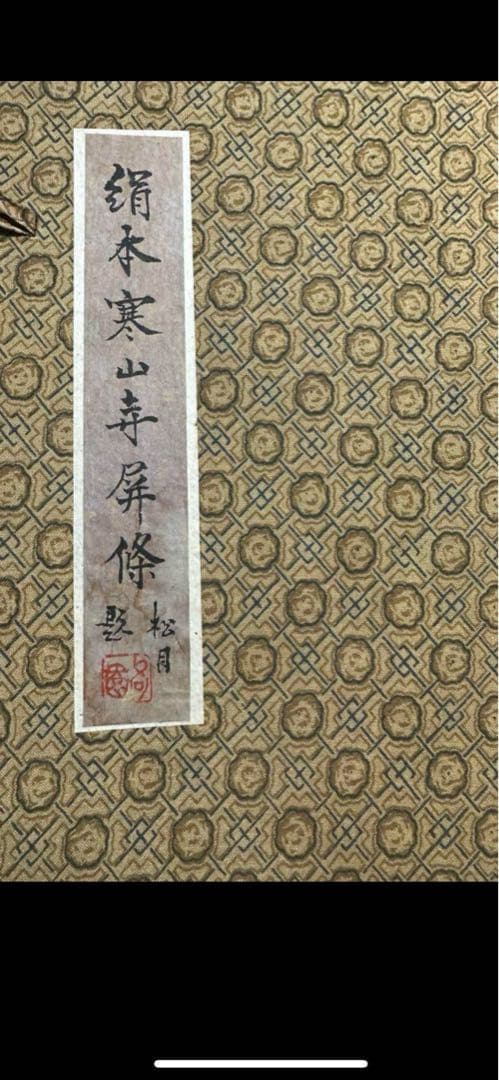 絹本寒山寺屏條
松月
題